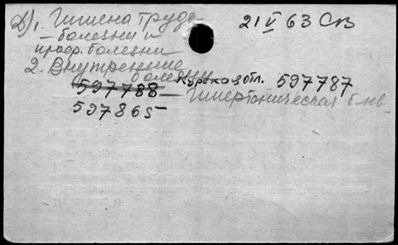 Д) 1. Гигиена труда 21 V 63 Св
– болезни и
проф. болезни
2. Внутренние
болезни Курская обл. 597787
597788 – Гипертоническая б-нь
597865 –